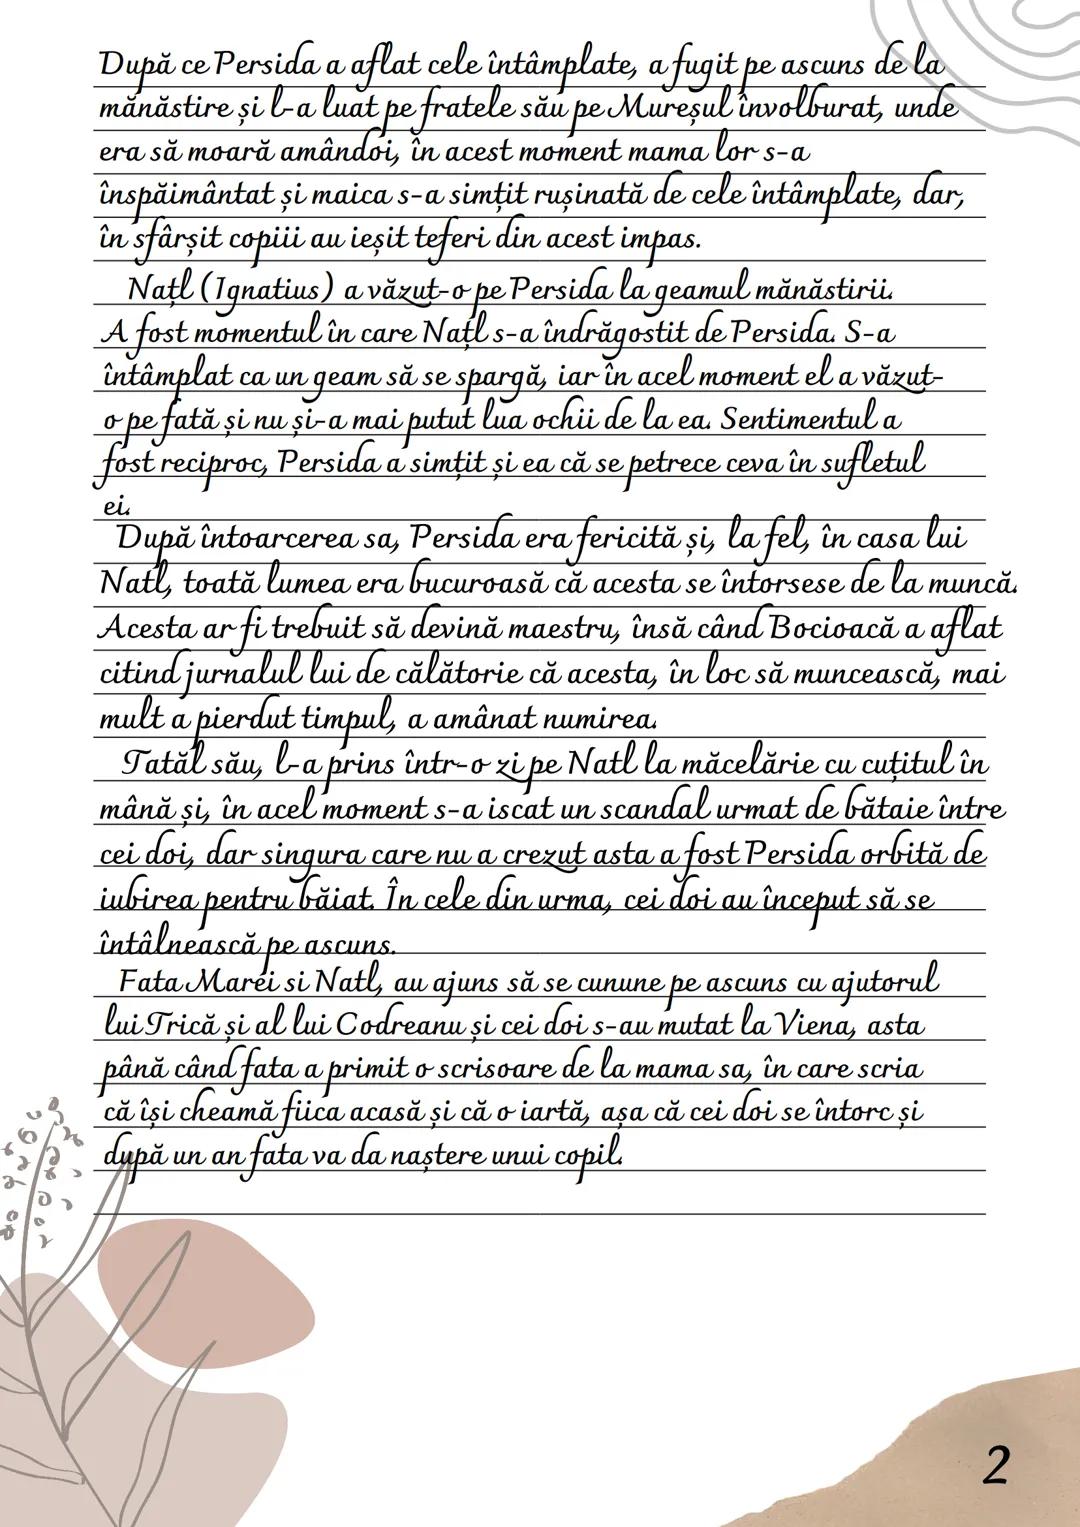 După ce Persida a aflat cele întâmplate, a fugit pe ascuns de la
mănăstire și l-a luat pe fratele său pe Mureșul învolburat, unde
era să moară amândoi, în acest moment mama lor s-a
înspăimântat și maica s-a simțit rușinată de cele întâmplate, dar,
în sfârșit copiii au ieșit teferi din acest impas.
Națl (Ignatius) a văzut-o pe Persida la geamul mănăstirii.
A fost momentul în care Națl s-a îndrăgostit de Persida. S-a
întâmplat ca un geam să se spargă, iar în acel moment el a văzut-
o pe fată și nu și-a mai putut lua ochii de la ea. Sentimentul a
fost reciproc, Persida a simțit și ea că se petrece ceva în sufletul
ei.
După întoarcerea sa, Persida era fericită și, la fel, în casa lui
Natl, toată lumea era bucuroasă că acesta se întorsese de la muncă.
Acesta ar fi trebuit să devină maestru, însă când Bocioacă a aflat
citind jurnalul lui de călătorie că acesta, în loc să muncească, mai
mult a pierdut timpul, a amânat numirea.
Tatăl său, l-a prins într-o zi pe Natl la măcelărie cu cuțitul în
mână și, în acel moment s-a iscat un scandal urmat de bătaie între
cei doi, dar singura care nu a crezut asta a fost Persida orbită de
iubirea pentru băiat. În cele din urma, cei doi au început să se
întâlnească pe ascuns.
Fata Marei si Natl, au ajuns să se cunune pe ascuns cu ajutorul
lui Trică și al lui Codreanu și cei doi s-au mutat la Viena, asta
până când fata a primit o scrisoare de la mama sa, în care scria
că își cheamă fiica acasă și că o iartă, așa că cei doi se întorc și
după un an fata va da naștere unui copil.
2